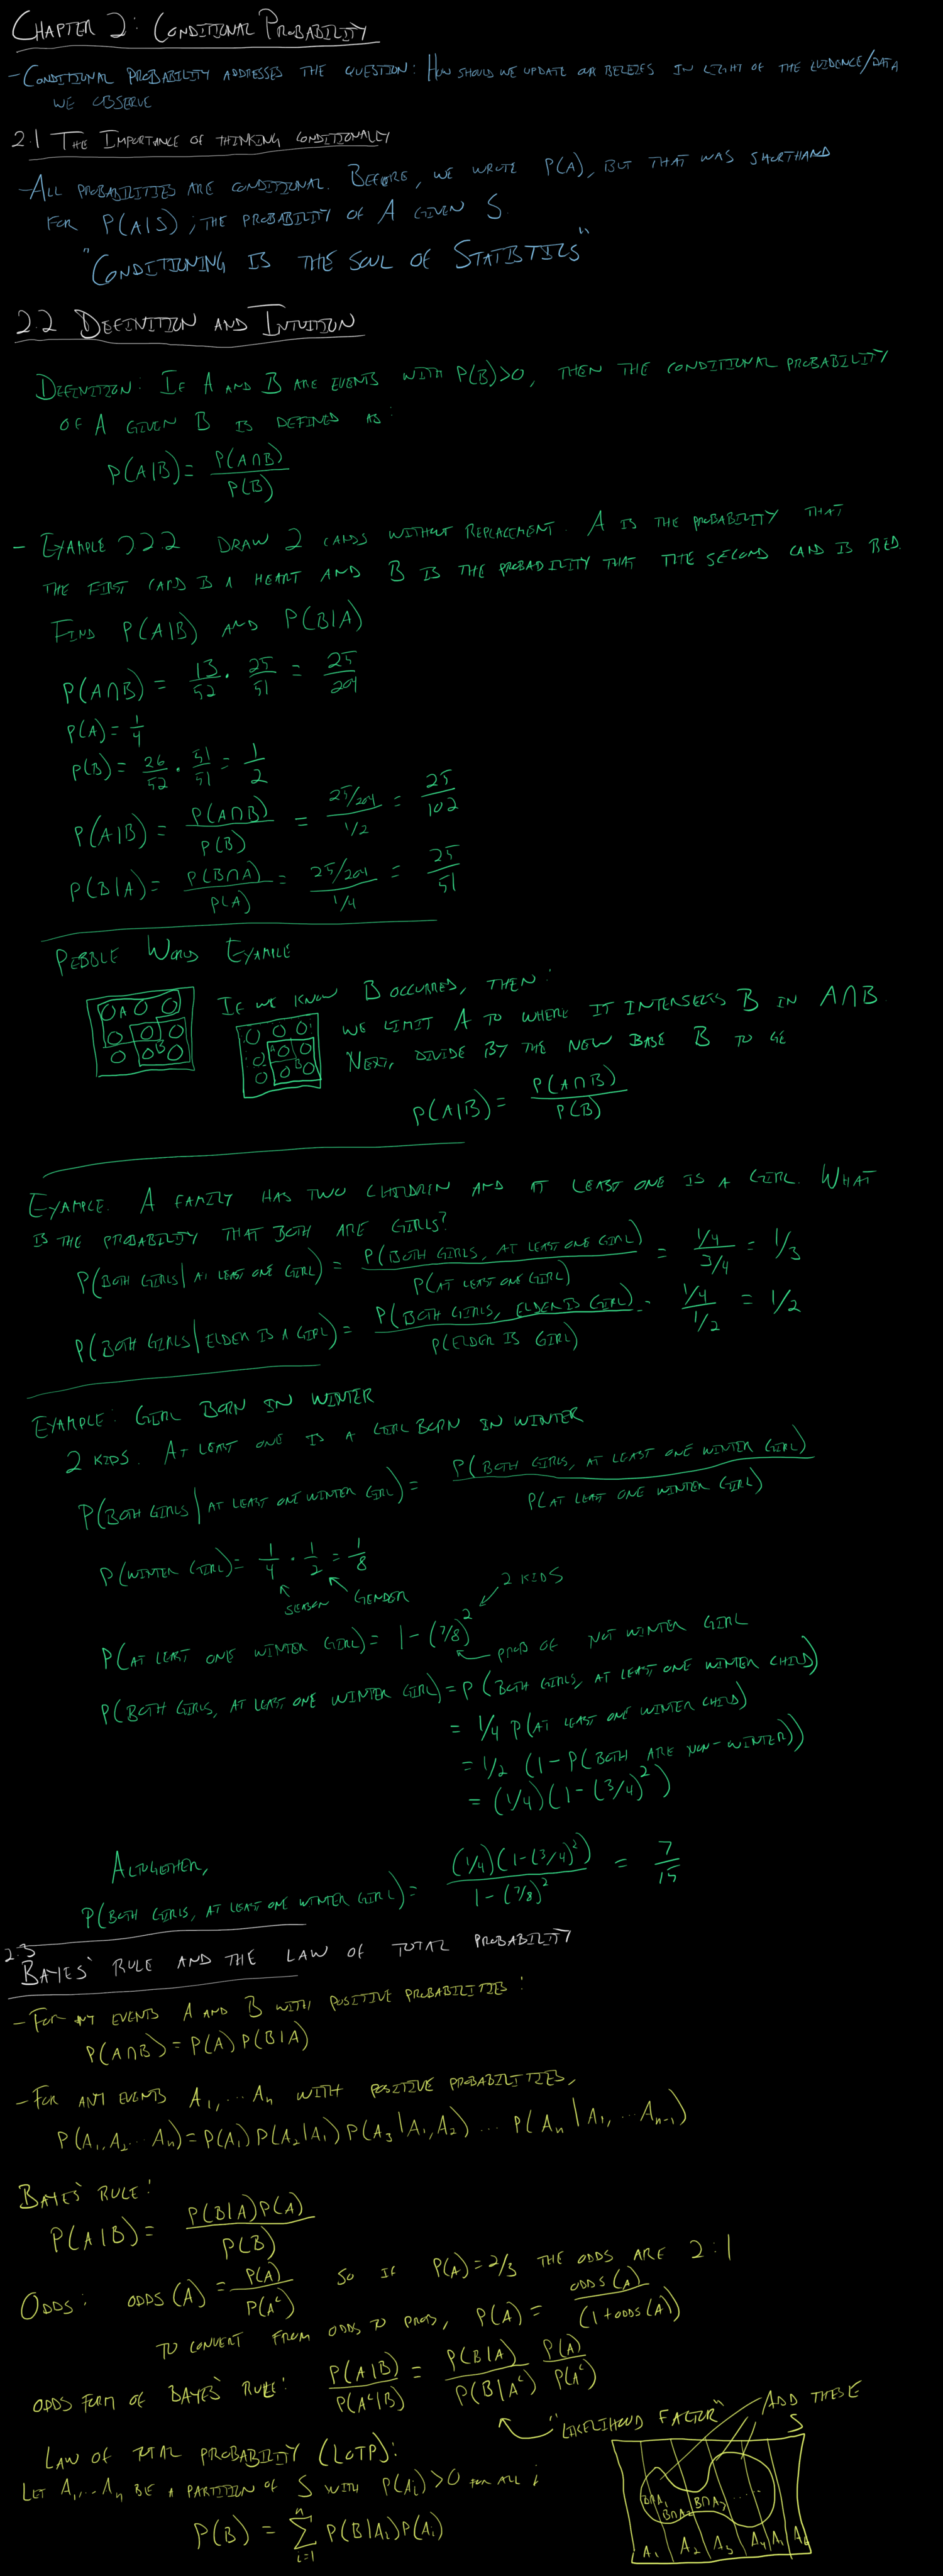 CHAPTER 2: CONDITIONAL PROBABILITY
- CONDITIONAL PROBABILITY ADDRESSES THE QUESTION: HOW SHOULD WE UPDATE OUR BELIEFS IN LIGHT OF THE EVIDENCE/DATA
WE OBSERVE
2.1 THE IMPORTANCE OF THINKING CONDITIONALLY
- ALL PROBABILITIES ARE CONDITIONAL. BEFORE, WE WROTE P(A), BUT THAT WAS SHORTHAND
FOR P(A|S); THE PROBABILITY OF A GIVEN S.
"CONDITIONING IS THE SOUL OF STATISTICS"
2.2 DEFINITION AND INTUITION
DEFINITION: IF A AND B ARE EVENTS WITH P(B)>0, THEN THE CONDITIONAL PROBABILITY
OF A GIVEN B IS DEFINED AS:
P(A|B) = P(A∩B) / P(B)
- EXAMPLE 2.2.2 DRAW 2 CARDS WITHOUT REPLACEMENT. A IS THE PROBABILITY THAT
THE FIRST CARD IS A HEART AND B IS THE PROBABILITY THAT THE SECOND CARD IS RED.
FIND P(A|B) AND P(B|A)
P(A∩B) = 13/52 · 25/51 = 25/204
P(A) = 1/4
P(B) = 26/52 · 51/51 = 1/2
P(A|B) = P(A∩B) / P(B) = 25/204 / 1/2 = 25/102
P(B|A) = P(B∩A) / P(A) = 25/204 / 1/4 = 25/51
PEBBLE WORLD EXAMPLE
IF WE KNOW B OCCURRED, THEN:
WE LIMIT A TO WHERE IT INTERSECTS B IN A∩B.
NEXT, DIVIDE BY THE NEW BASE B TO GE
A
B
A
B
P(A|B) = P(A∩B) / P(B)
EXAMPLE. A FAMILY HAS TWO CHILDREN AND AT LEAST ONE IS A GIRL. WHAT
IS THE PROBABILITY THAT BOTH ARE GIRLS?
P(BOTH GIRLS | AT LEAST ONE GIRL) = P(BOTH GIRLS, AT LEAST ONE GIRL) / P(AT LEAST ONE GIRL) = 1/4 / 3/4 = 1/3
P(BOTH GIRLS | ELDER IS A GIRL) = P(BOTH GIRLS, ELDER IS GIRL) / P(ELDER IS GIRL) = 1/4 / 1/2 = 1/2
EXAMPLE: GIRL BORN IN WINTER
2 KIDS. AT LEAST ONE IS A GIRL BORN IN WINTER
P(BOTH GIRLS | AT LEAST ONE WINTER GIRL) = P(BOTH GIRLS, AT LEAST ONE WINTER GIRL) / P(AT LEAST ONE WINTER GIRL)
P(WINTER GIRL) = 1/4 · 1/2 = 1/8
SEASON GENDER
2 KIDS
P(AT LEAST ONE WINTER GIRL) = 1 - (7/8)²
PROB OF NOT WINTER GIRL
P(BOTH GIRLS, AT LEAST ONE WINTER GIRL) = P(BOTH GIRLS, AT LEAST ONE WINTER CHILD)
= 1/4 P(AT LEAST ONE WINTER CHILD)
= 1/2 (1 - P(BOTH ARE NON-WINTER))
= (1/4)(1-(3/4)²)
ALTOGETHER,
P(BOTH GIRLS, AT LEAST ONE WINTER GIRL) = (1/4)(1-(3/4)²) / 1-(7/8)² = 7/15
2.3
BAYES' RULE AND THE LAW OF TOTAL PROBABILITY
- FOR ANY EVENTS A AND B WITH POSITIVE PROBABILITIES:
P(A∩B) = P(A) P(B|A)
- FOR ANY EVENTS A₁, ... Aₙ WITH POSITIVE PROBABILITIES,
P(A₁, A₂ ... Aₙ) = P(A₁) P(A₂|A₁) P(A₃|A₁, A₂) ... P(Aₙ | A₁, ... Aₙ₋₁)
BAYES' RULE:
P(A|B) = P(B|A)P(A) / P(B)
ODDS: ODDS(A) = P(A) / P(Aᶜ) SO IF P(A) = 2/3 THE ODDS ARE 2:1
TO CONVERT FROM ODDS TO PROB, P(A) = ODDS(A) / (1+ODDS(A))
ODDS FORM OF BAYES' RULE: P(A|B) / P(Aᶜ|B) = P(B|A) / P(B|Aᶜ) P(A) / P(Aᶜ)
"LIKELIHOOD FACTOR"
ADD THESE
S
LAW OF TOTAL PROBABILITY (LOTP):
LET A₁, ... Aₙ BE A PARTITION OF S WITH P(Aᵢ) > 0 FOR ALL i
P(B) = Σ i=1 n P(B|Aᵢ)P(Aᵢ)
B∩A₁ B∩A₂ B∩A₃ ....
A₁ A₂ A₃ A₄ A₅ A₆